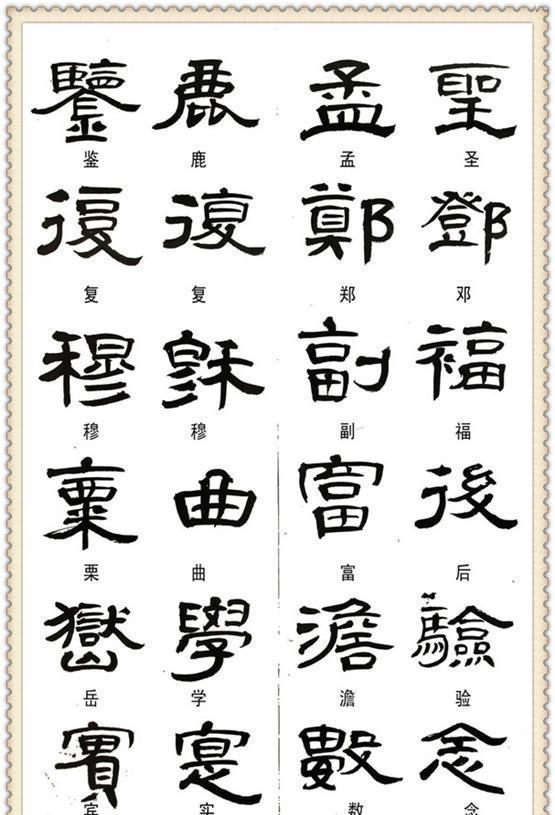 鑒 鹿 孟 聖
鉴 鹿 孟 圣
復 復 鄭 鄧
复 复 郑 邓
穆 穆 副 福
穆 穆 副 福
栗 曲 富 後
栗 曲 富 后
嶽 學 澹 驗
岳 学 澹 验
賓 寔 數 念
宾 实 数 念